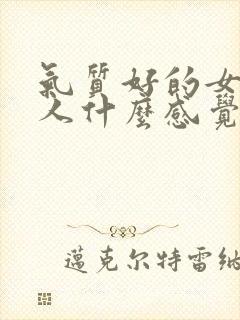 氣質好的女
人什麼感覺
邁克尔特雷纳